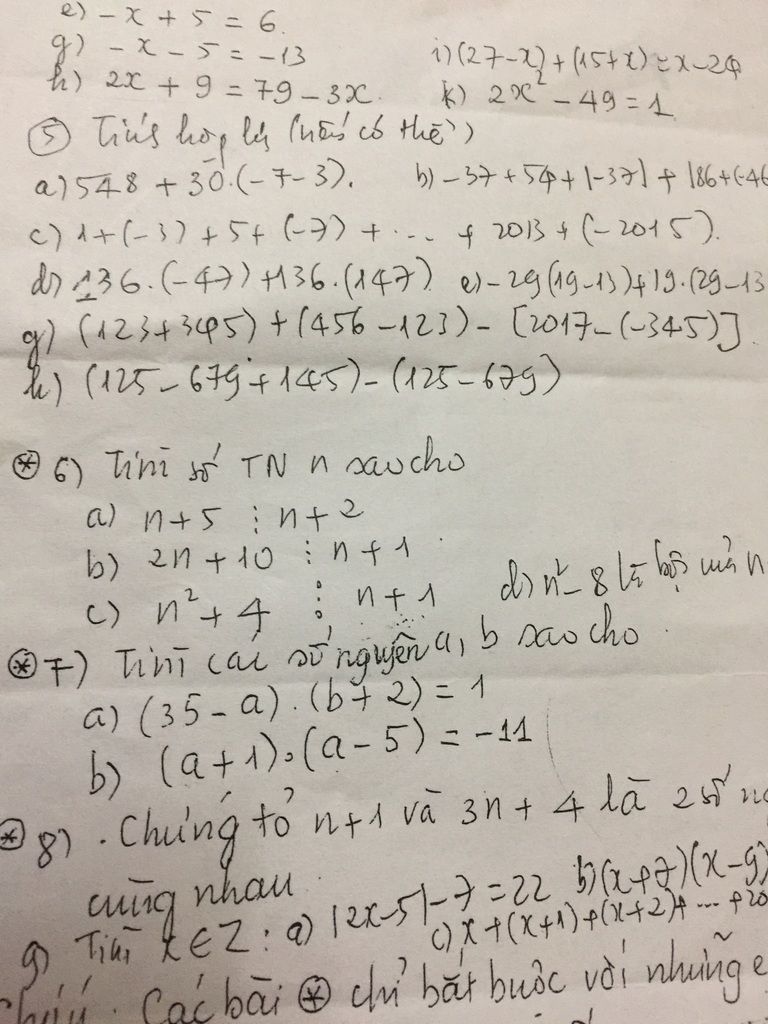 e) -x + 5 = 6
g) -x - 5 = -13
i) (27-x) + (15+x) = x - 24
h) 2x + 9 = 79 - 3x.
k) 2x² - 49 = 1
⑤ Tính hợp lý (nếu có thể)
a) 548 + 30.(-7-3).
b) -37 + 54 + |-37| + |86+(-46
c) 1+(-3) + 5 + (-7) + .... + 2013 + (-2015).
d) 136.(-47) + 136.(147)
e) -29(19-13)+19.(29-13
g) (123+345) + (456-123) - [2017-(-345)].
h) (125 - 679 + 145) - (125 - 679)
* 6) Tìm số TN n sao cho
a) n+5 ⋮ n+2
b) 2n+10 ⋮ n+1
c) n² + 4 ⋮ n+1
d) n² - 8 là bội của n
* 7) Tìm các số nguyên a, b sao cho
a) (35-a).(b+2) = 1
b) (a+1).(a-5) = -11
* 8) . Chứng tỏ n+1 và 3n+4 là 2 số
cùng nhau
9) Tìm x ∈ Z : a) |2x-5| - 7 = 22 b) (x+7)(x-9)
c) x + (x+1) + (x+2) + ... + 20
Chú ý . Các bài * chỉ bắt buộc với những e